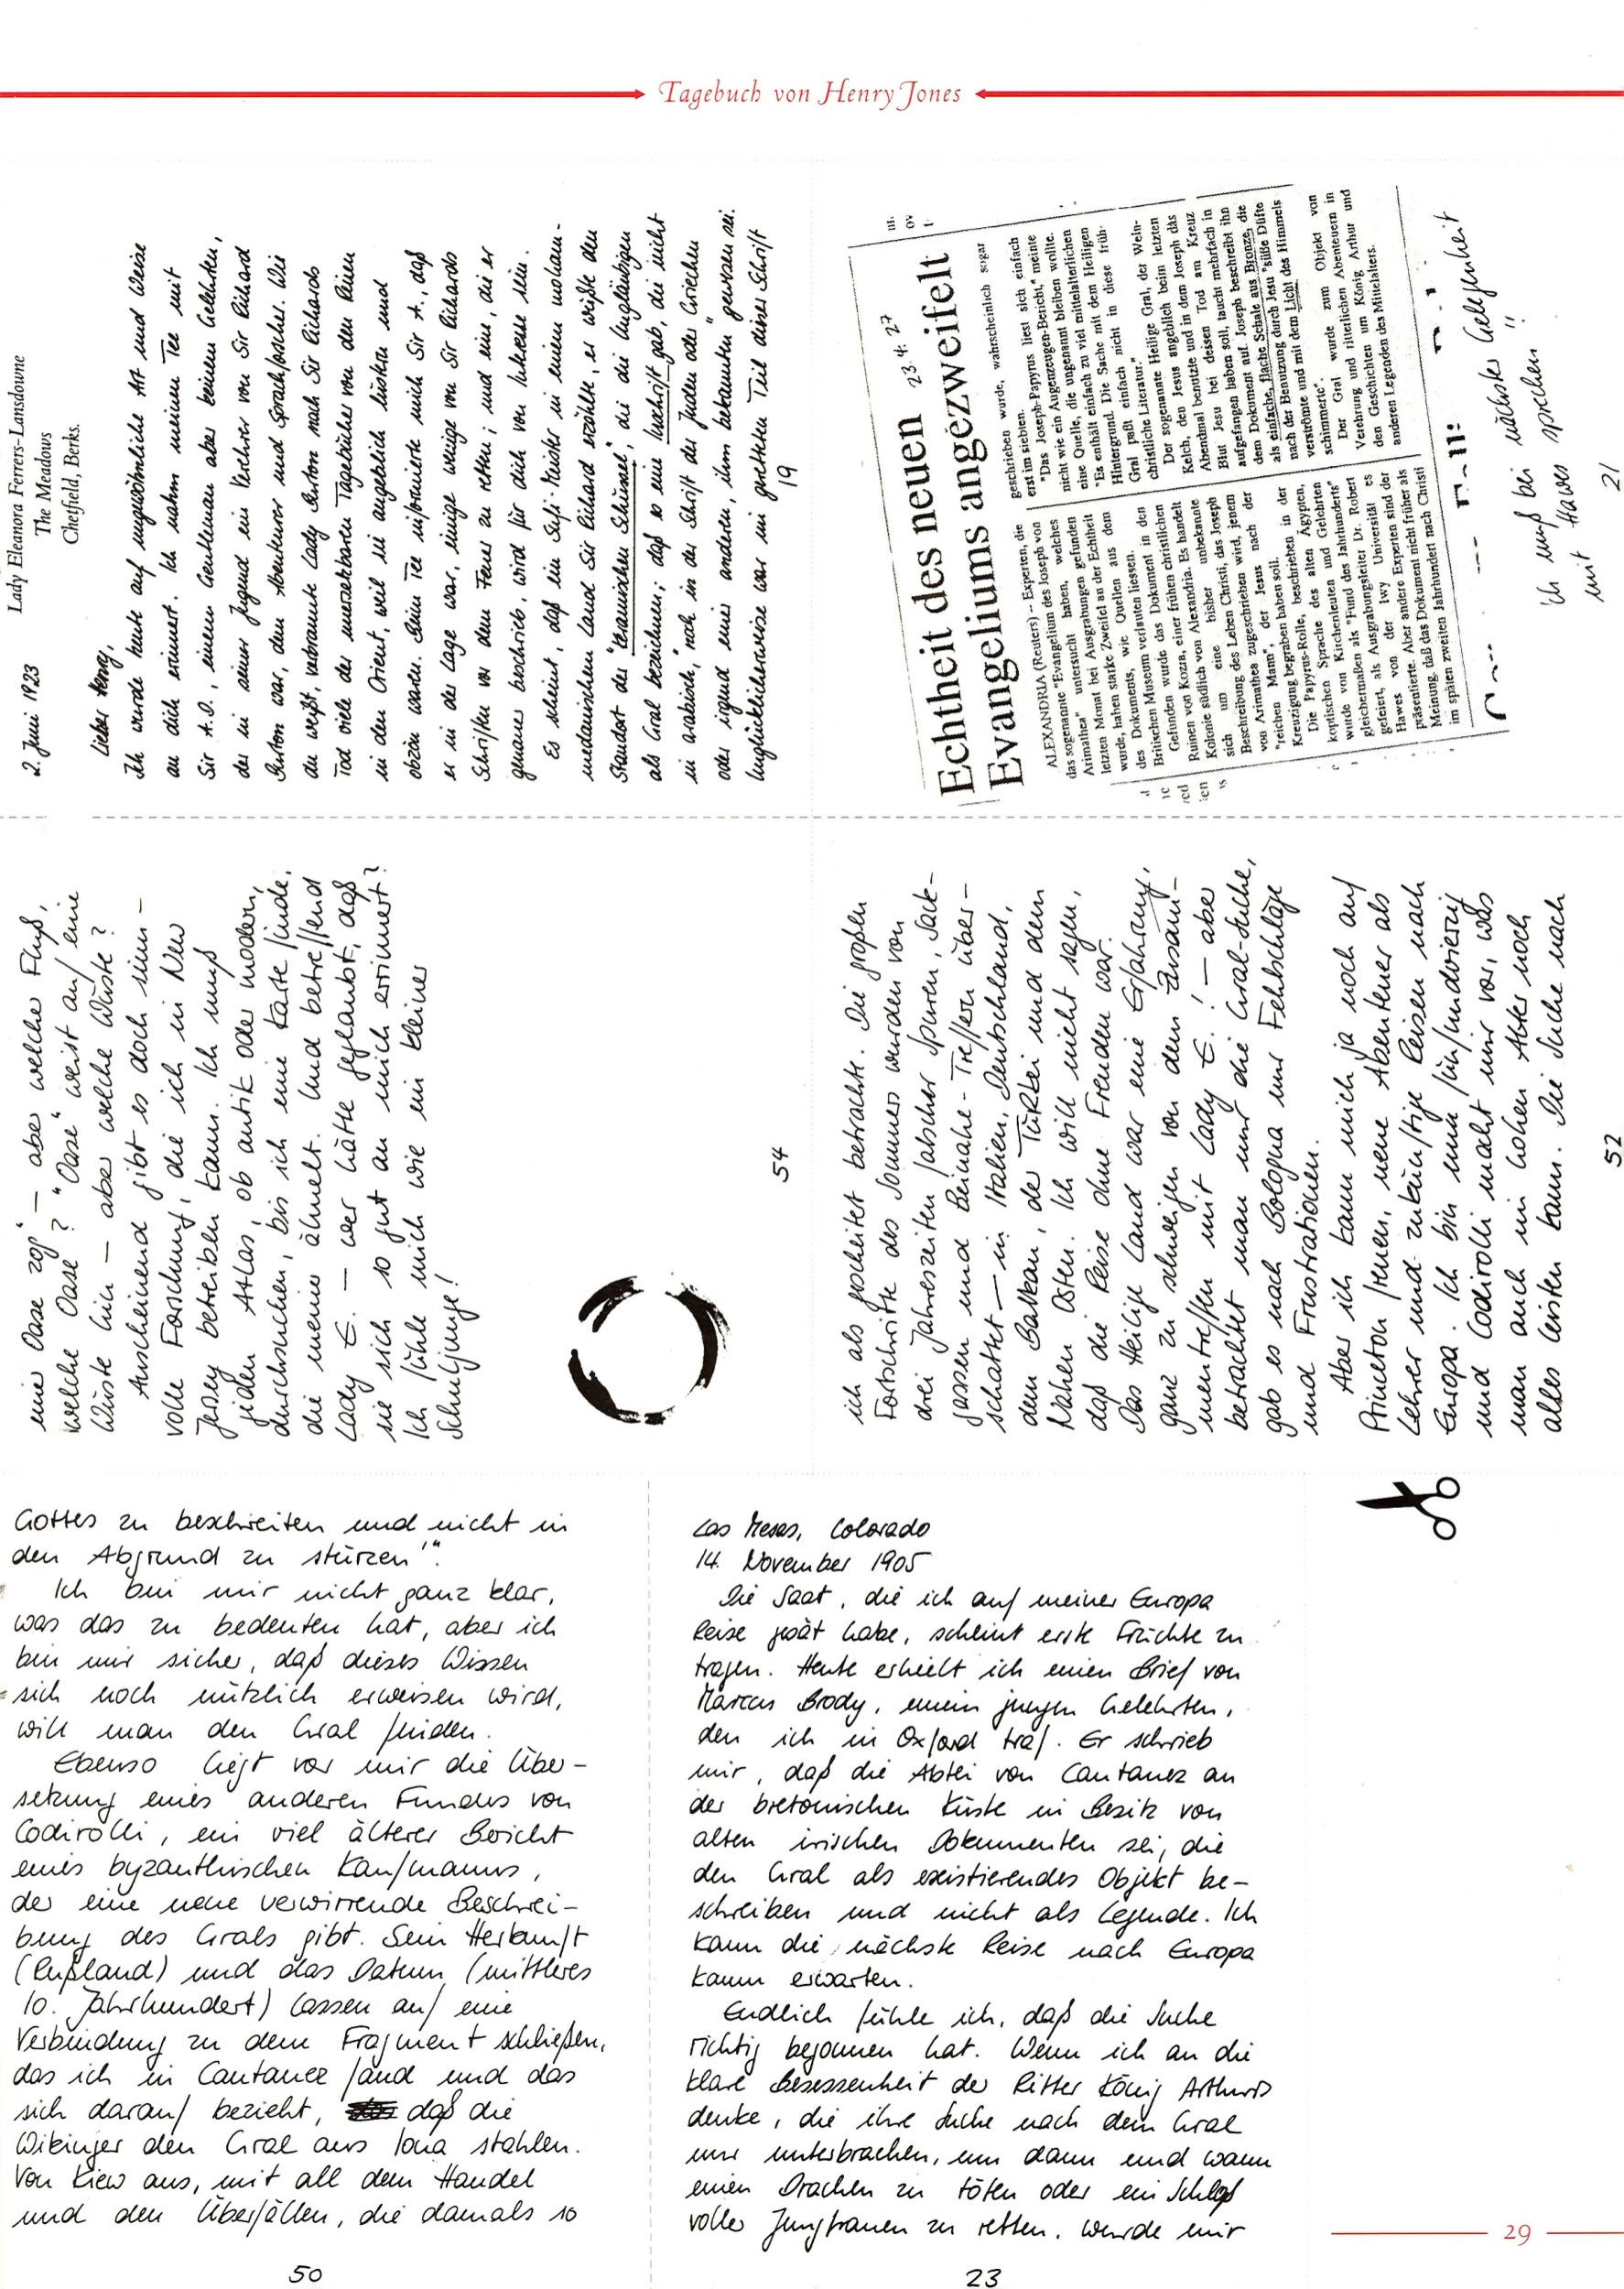 Tagebuch von Henry Jones
Lady Eleanora Ferrers-Lansdowne
The Meadows
Cheffield, Berks.
2. Juni 1923
Lieber Henry,
Ich wurde heute auf ungewöhnliche Art und Weise
an dich erinnert. Ich nahm meinen Tee mit
Sir A.O., einem Gentleman aber keinem Gelehrten,
der in seiner Jugend ein Verehrer von Sir Richard
Burton war, dem Abenteurer und Sprachforscher. Wie
du weißt, verbrannte Lady Burton nach Sir Richards
Tod viele der unersetzbaren Tagebücher von den Reisen
in den Orient, weil sie angeblich lüstern und
obzön waren. Beim Tee informierte mich Sir A., daß
er in der Lage war, einige wenige von Sir Richards
Schriften vor dem Feuer zu retten; und eine, die er
genauer beschrieb, wird für dich von Interesse sein.
Es scheint, daß ein Sufi-Meister in einem moham-
medanischen Land Sir Richard erzählte, er wüßte den
Standort der "keramischen Schüssel", die die Ungläubigen
als Gral bezeichnen; daß so eine Inschrift gab, die nicht
in arabisch, noch in der Schrift der Juden oder Griechen
oder irgend einer anderen, ihm bekannten" gewesen sei.
Unglücklicherweise war im geretteten Teil dieser Schrift
19
23.4.27
Echtheit des neuen
Evangeliums angezweifelt
ALEXANDRIA (Reuters) -- Experten, die
das sogenannte "Evangelium des Joseph von
Arimathea" untersucht haben, welches
letzten Monat bei Ausgrabungen gefunden
wurde, haben starke Zweifel an der Echtheit
des Dokuments, wie Quellen aus dem
Britischen Museum verlauten liessen.
Gefunden wurde das Dokument in den
Ruinen von Kozra, einer frühen christlichen
Kolonie südlich von Alexandria. Es handelt
sich um eine bisher unbekannte
Beschreibung des Leben Christi, das Joseph
von Arimathea zugeschrieben wird, jenem
"reichen Mann", der Jesus nach der
Kreuzigung begraben haben soll.
Die Papyrus-Rolle, beschrieben in der
koptischen Sprache des alten Ägypten,
wurde von Kirchenleuten und Gelehrten
gleichermaßen als "Fund des Jahrhunderts"
gefeiert, als Ausgrabungsleiter Dr. Robert
Hawes von der Iwy Universität es
präsentierte. Aber andere Experten sind der
Meinung, daß das Dokument nicht früher als
im späten zweiten Jahrhundert nach Christi
geschrieben wurde, wahrscheinlich sogar
erst im siebten.
"Das Joseph-Papyrus liest sich einfach
nicht wie ein Augenzeugen-Bericht," meinte
eine Quelle, die ungenannt bleiben wollte.
"Es enthält einfach zu viel mittelalterlichen
Hintergrund. Die Sache mit dem Heiligen
Gral paßt einfach nicht in diese früh-
christliche Literatur."
Der sogenannte Heilige Gral, der Wein-
Kelch, den Jesus angeblich beim letzten
Abendmal benutzte und in dem Joseph das
Blut Jesu bei dessen Tod am Kreuz
aufgefangen haben soll, taucht mehrfach in
dem Dokument auf. Joseph beschreibt ihn
als einfache, flache Schale aus Bronze, die
nach der Benutzung durch Jesu "süße Düfte
verströmte und mit dem Licht des Himmels
schimmerte".
Der Gral wurde zum Objekt von
Verehrung und ritterlichen Abenteuern in
den Geschichten um König Arthur und
anderen Legenden des Mittelalters.
Ich muß bei nächster Gelegenheit
mit Hawes sprechen!!
21
eine Oase zog" – aber welche Fluß,
welche Oase? "Oase" weist auf eine
Wüste hin – aber welche Wüste?
Anscheinend gibt es doch sinn-
volle Forschung, die ich in New
Jersey betreiben kann. Ich muß
jeden Atlas, ob antik oder modern,
durchsuchen, bis ich eine Karte finde,
die meiner ähnelt. Und betreffend
Lady E. – wer hätte geglaubt, daß
sie sich so gut an mich erinnert?
Ich fühle mich wie ein kleiner
Schuljunge!
54
ich als gescheitert betrachte. Die großen
Fortschritte des Sommers wurden von
drei Jahreszeiten falscher Spuren, Sack-
gassen und Beinahe-Treffern über-
schattet – in Italien, Deutschland,
dem Balkan, der Türkei und dem
Nahen Osten. Ich will nicht sagen,
daß die Reise ohne Freuden war.
Das Heilige Land war eine Erfahrung,
ganz zu schweigen von dem Zusam-
mentreffen mit Lady E.! – aber
betrachtet man nur die Gral-Suche,
gab es nach Bologna nur Fehlschläge
und Frustrationen.
Aber ich kann mich ja noch auf
Princeton freuen, neue Abenteuer als
Lehrer und zukünftige Reisen nach
Europa. Ich bin nun fünfundvierzig
und Codirolli macht mir vor, was
man auch im hohen Alter noch
alles leisten kann. Die Suche nach
52
Gottes zu beschreiten und nicht in
den Abgrund zu stürzen'".
Ich bin mir nicht ganz klar,
was das zu bedeuten hat, aber ich
bin mir sicher, daß dieses Wissen
sich noch nützlich erweisen wird,
will man den Gral finden.
Ebenso liegt vor mir die Über-
setzung eines anderen Fundes von
Codirolli, ein viel älterer Bericht
eines byzanthischen Kaufmanns,
der eine neue verwirrende Beschrei-
bung des Grals gibt. Sein Herkunft
(Rußland) und das Datum (mittleres
10. Jahrhundert) lassen auf eine
Verbindung zu dem Fragment schließen,
das ich in Cantanez fand und das
sich darauf bezieht, daß die
Wikinger den Gral aus Iona stahlen.
Von Kiew aus, mit all dem Handel
und den Überfällen, die damals so
50
Las Mesas, Colorado
14. November 1905
Die Saat, die ich auf meiner Europa
Reise gesät habe, scheint erste Früchte zu
tragen. Heute erhielt ich einen Brief von
Marcus Brody, einem jungen Gelehrten,
den ich in Oxford traf. Er schrieb
mir, daß die Abtei von Cantanez an
der bretonischen Küste in Besitz von
alten irischen Dokumenten sei, die
den Gral als existierendes Objekt be-
schreiben und nicht als Legende. Ich
kann die nächste Reise nach Europa
kaum erwarten.
Endlich fühle ich, daß die Suche
richtig begonnen hat. Wenn ich an die
klare Besessenheit der Ritter König Arthurs
denke, die ihre Suche nach dem Gral
nur unterbrachen, um dann und wann
einen Drachen zu töten oder ein Schloß
voller Jungfrauen zu retten, wurde mir
23
29